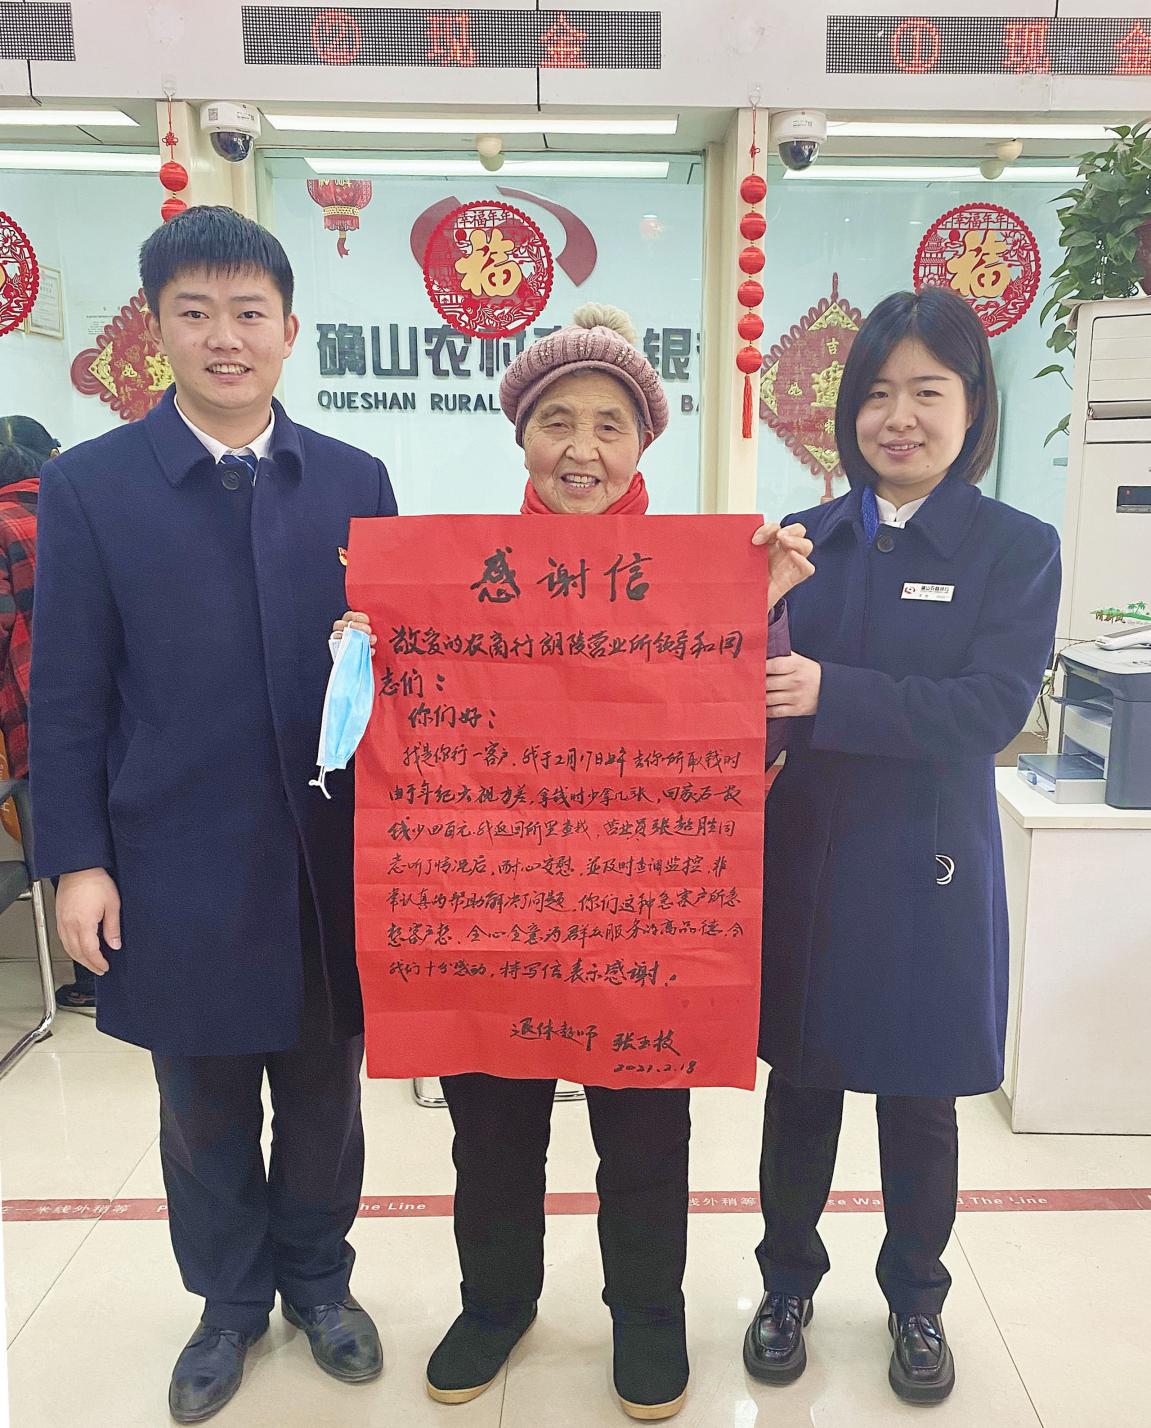 ② 现 金
① 现 金
幸福年年
福
幸福年年
福
吉
确山农村
银
QUESHAN RURAL
感谢信
敬爱的农商行朗陵营业所领导和同
志们：
你们好：
我是你行一客户，我于2月17日上午去你所取钱时
由于年纪大视力差，拿钱时少拿几张，回家后一数
钱少四百元，我返回所里查找，营业员张超胜同
志听了情况后，耐心安慰，並及时查调监控，非
常认真的帮助解决了问题，你们这种急客户所急
想客户想、全心全意为群众服务的高品德，令
我们十分感动，特写信表示感谢。
退休教师 张玉枝
2021.2.18
在一米线外稍等
the Line
线外稍等
The Line